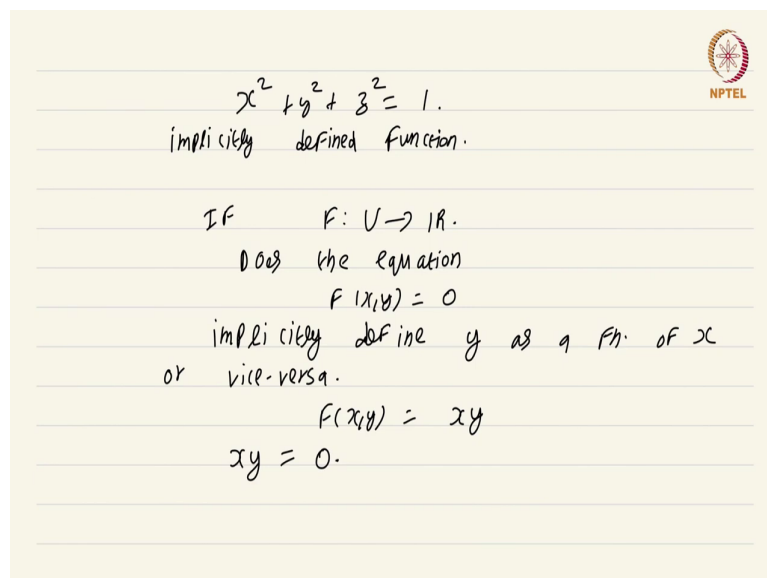 NPTEL
x² + y² + z² = 1.
implicitly defined function.
If F: U → ℝ.
Does the equation
F(x,y) = 0
implicitly define y as a fn. of x
or vice-versa.
F(x,y) = xy
xy = 0.